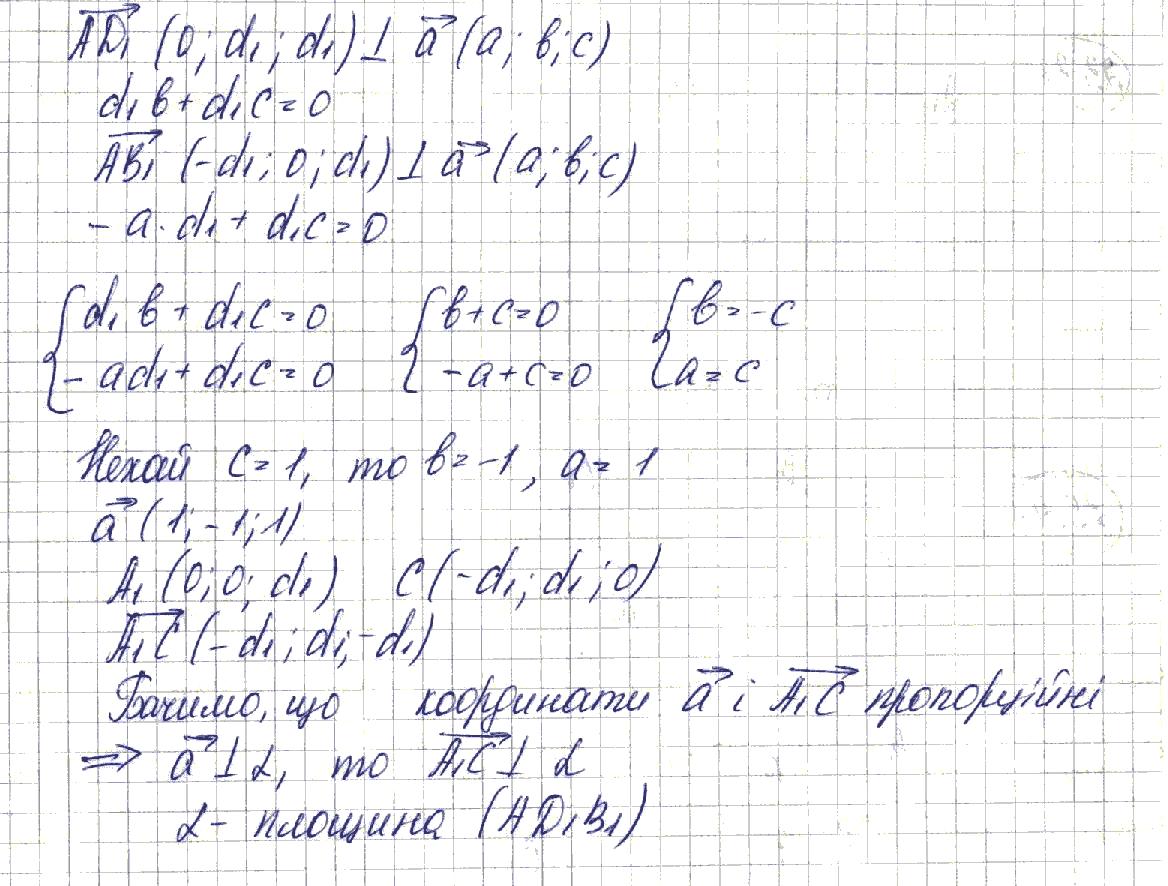 AD₁ (0; d₁; d₁) ⊥ a⃗ (a; в; c)
d₁ в + d₁ c = 0
AB₁ (-d₁; 0; d₁) ⊥ a⃗ (a; в; c)
- a · d₁ + d₁ c = 0
{ d₁ в + d₁ c = 0 { в + c = 0 { в = -c
- a d₁ + d₁ c = 0 - a + c = 0 a = c
Нехай c = 1, то в = -1, a = 1
a⃗ (1; -1; 1)
A₁ (0; 0; d₁) C (-d₁; d₁; 0)
A₁C (-d₁; d₁; -d₁)
Бачимо, що координати a⃗ і A₁C пропорційні
⇒ a⃗ ⊥ α, то A₁C ⊥ α
α - площина (AD₁B₁)